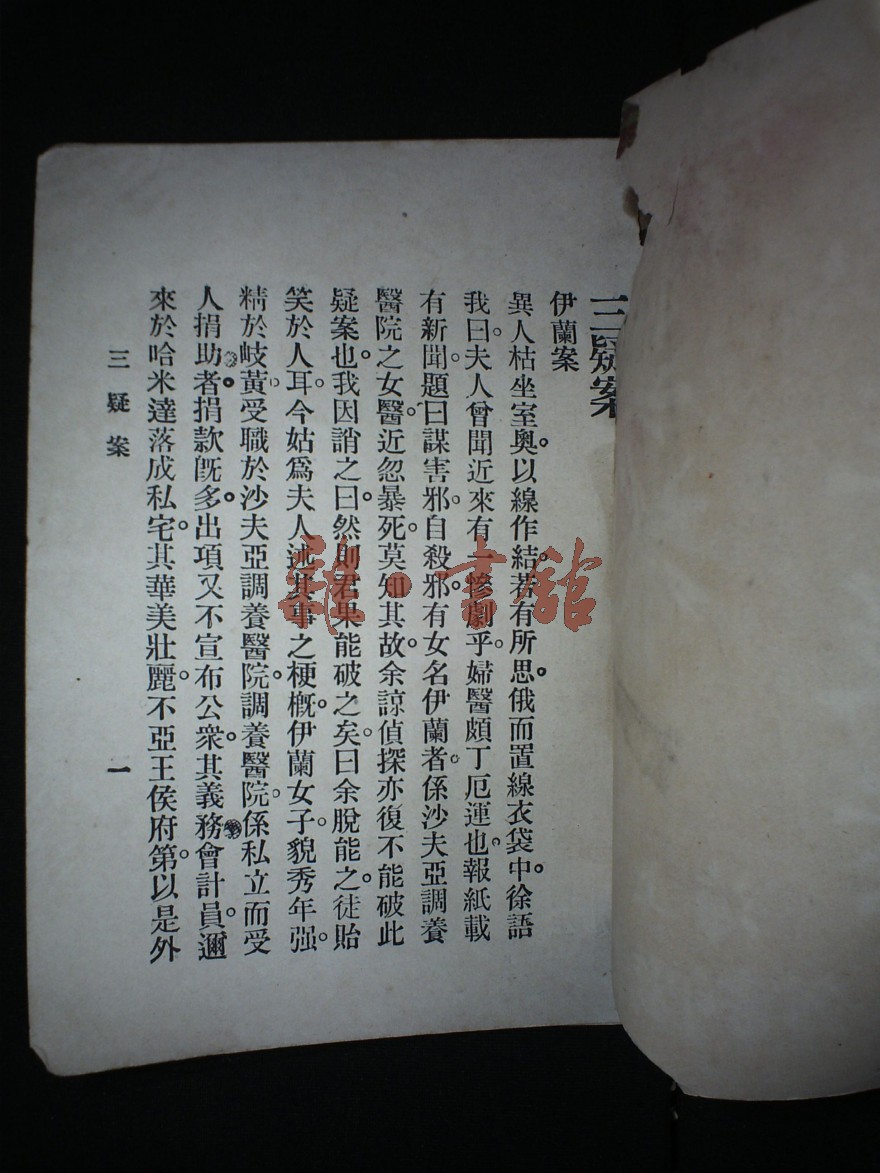 三疑案
伊蘭案
異人枯坐室奧。以線作結。若有所思。俄而置線衣袋中。徐語
我曰。夫人曾聞近來有一慘劇乎。婦醫頗丁厄運也。報紙載
有新聞。題曰謀害邪。自殺邪。有女名伊蘭者。係沙夫亞調養
醫院之女醫。近忽暴死。莫知其故。余諒偵探亦復不能破此
疑案也。我因誚之曰。然則君果能破之矣。曰余脫能之。徒貽
笑於人耳。今姑為夫人述其事之梗概。伊蘭女子。貌秀年强。
精於岐黃。受職於沙夫亞調養醫院。調養醫院。係私立而受
人捐助者。捐款旣多。出項又不宣布公衆。其義務會計員。邇
來於哈米達落成私宅。其華美壯麗。不亞王侯府第。以是外
三疑案
一
雜·書館